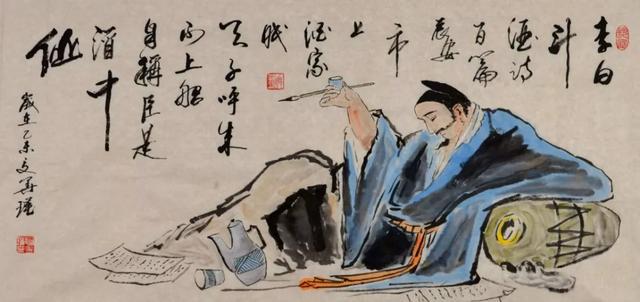 李白
斗
酒诗
百篇
長安
市
上
酒家
眠
天子呼来
不上船
自稱臣是
酒中
仙
歲在乙未